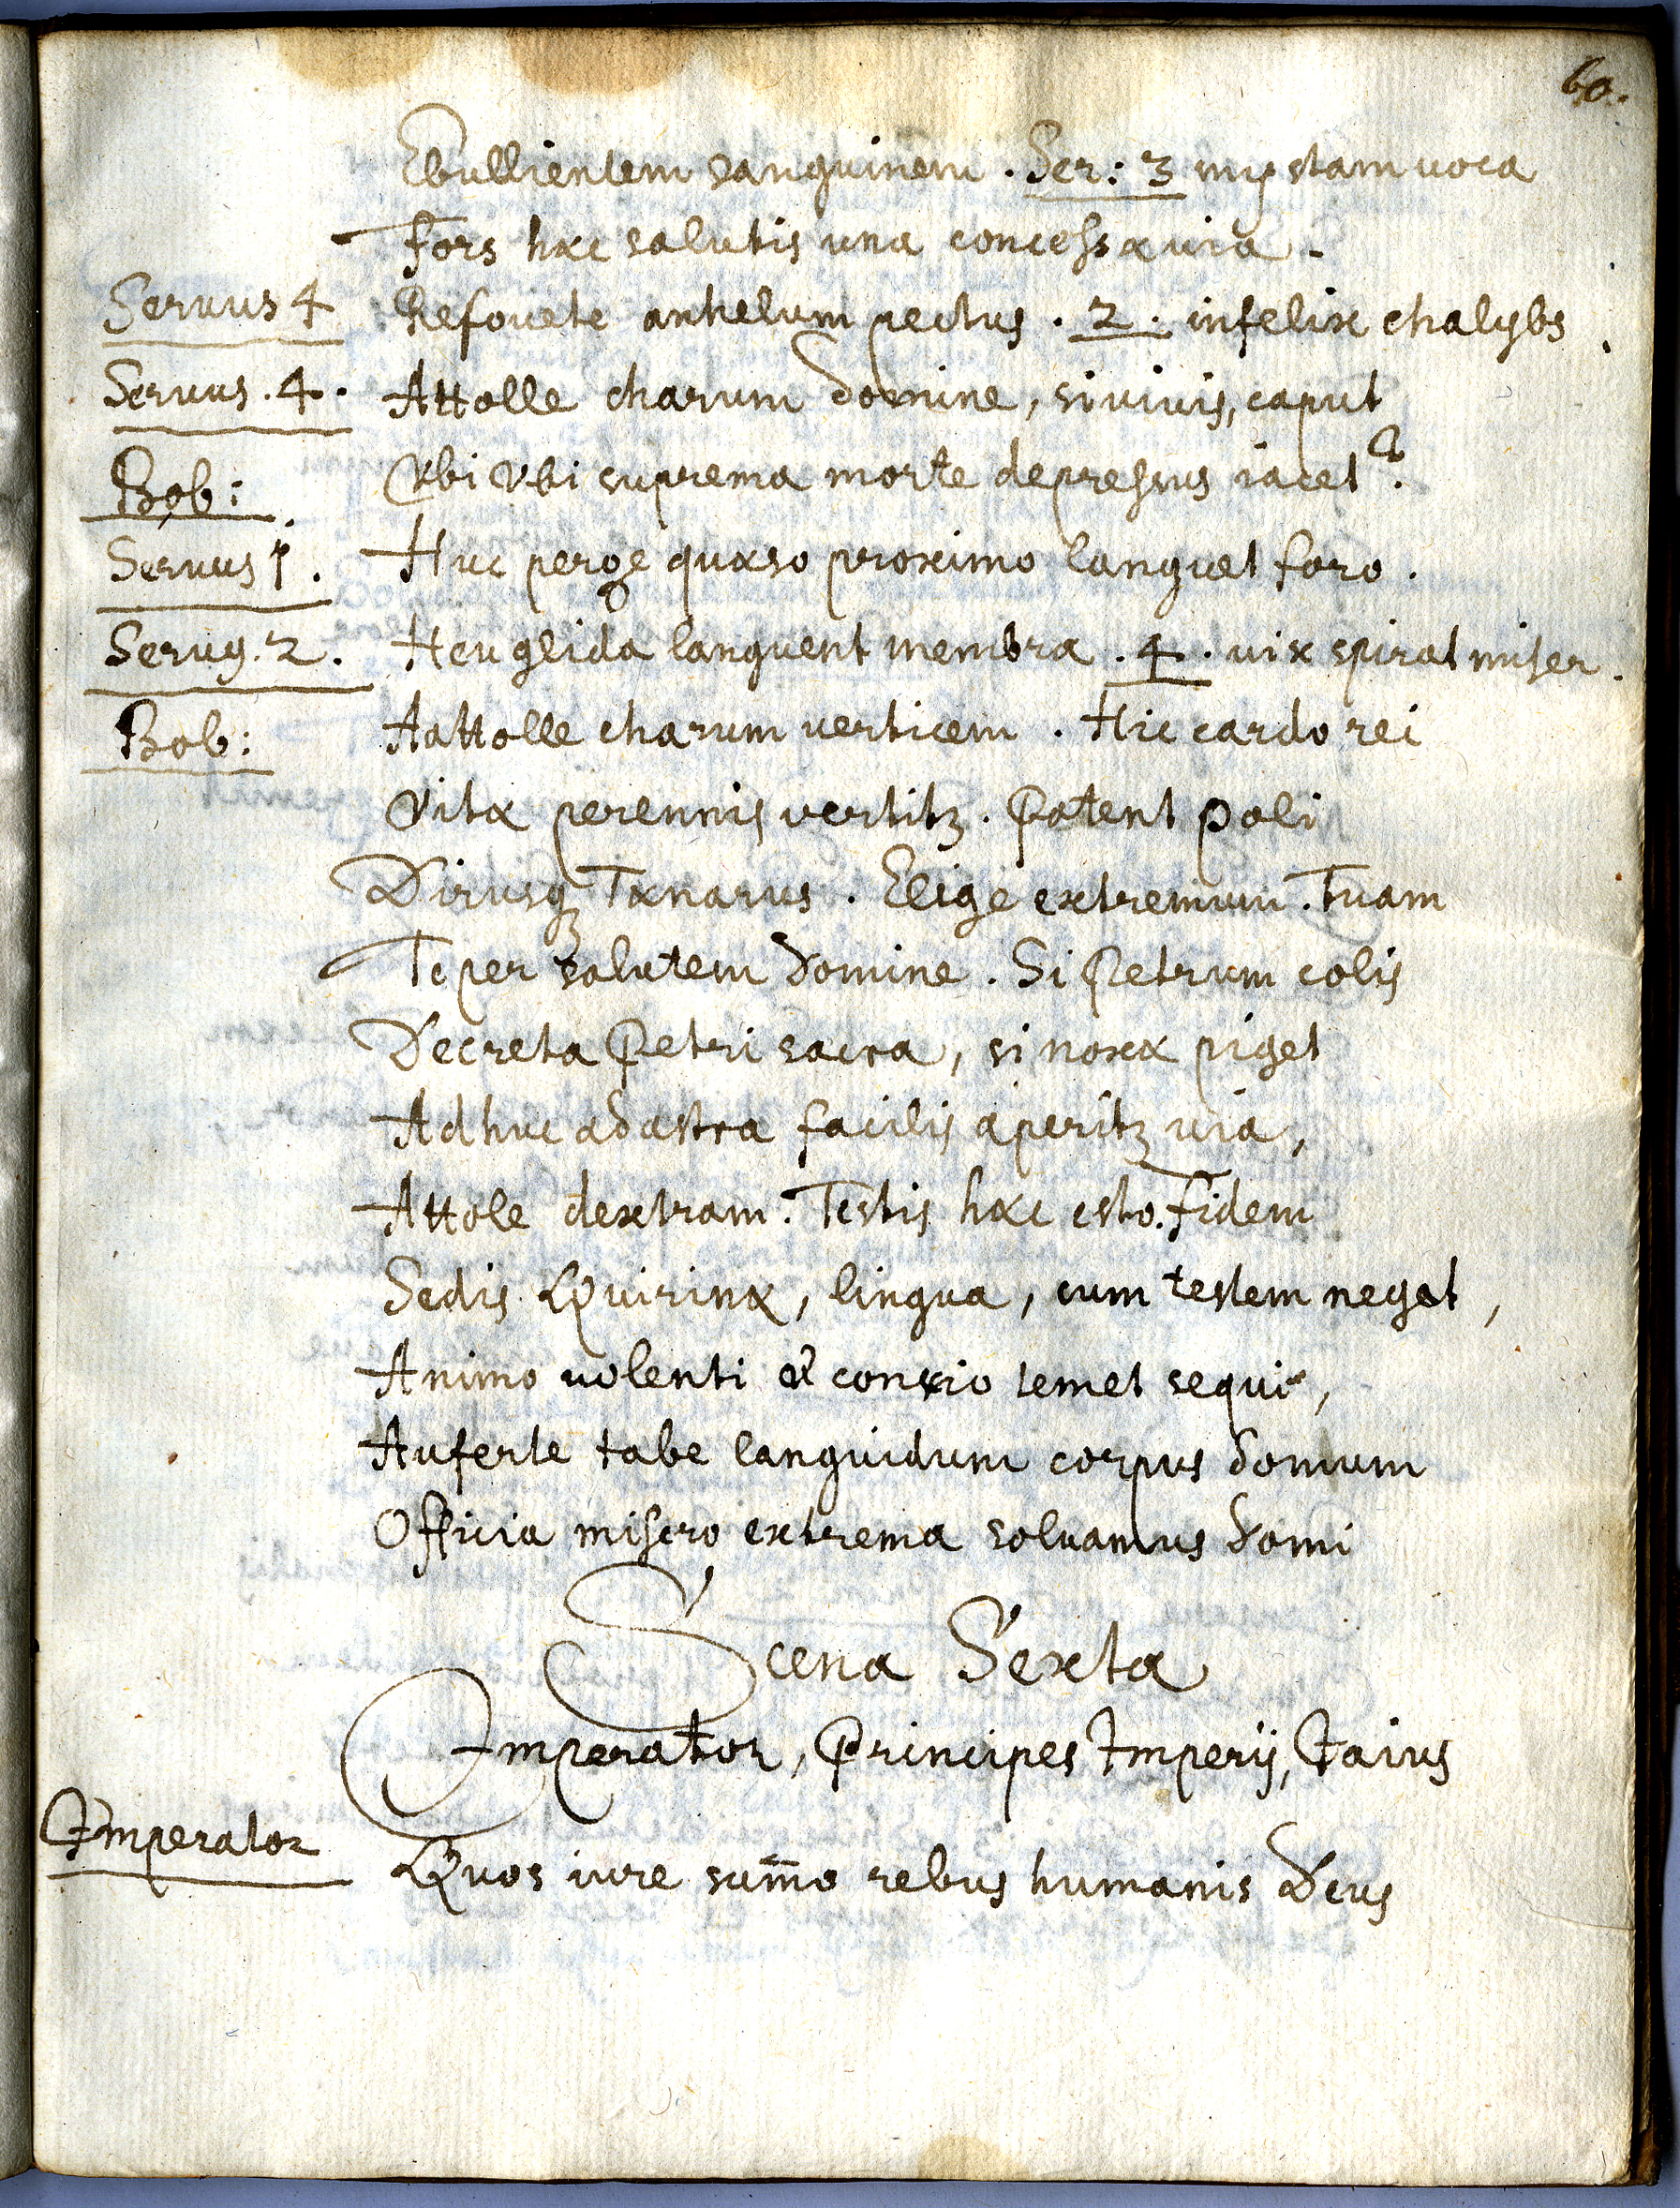 60.
Ebullientem sanguinem. Ser: 3 mystam uoca
Fors hæc salutis una concessa uia.
Seruus 4 Refouete anhelum pectus. 2. infelix chalybs.
Seruus. 4. Attolle charum Domine, si uiuis, caput
Bob: Vbi Vbi suprema morte depressus iacet?
Seruus 1. Huc perge quæso proximo languet foro.
Seruus. 2. Heu glida languent membra. 4. uix spirat miser.
Bob: Aattolle charum uerticem. Hic cardo rei
Vitæ perennis uertitꝫ. Patent poli
Dirusqꝫ Tænarus. Elige extremum. Tuam
Te per salutem Domine. Si Petrum colis
Decreta Petri sacra, si noxæ piget
Adhuc ad astra facilis aperitꝫ uia,
Attole dextram. Testis hæc esto. Fidem
Sedis Quirinæ, lingua, cum testem neget,
Animo uolenti & conscio temet sequi,
Auferte tabe languidum corpus domum
Officia misero extrema soluamus domi
Scena Sexta
Imperator, Principes Imperij, Caius
Imperator Quos iure sum̄o rebus humanis Deus